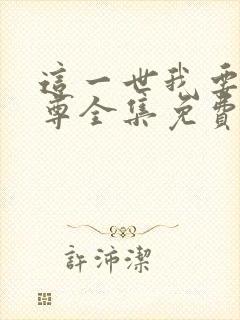 這一世我要
尊全集免費
許沛潔